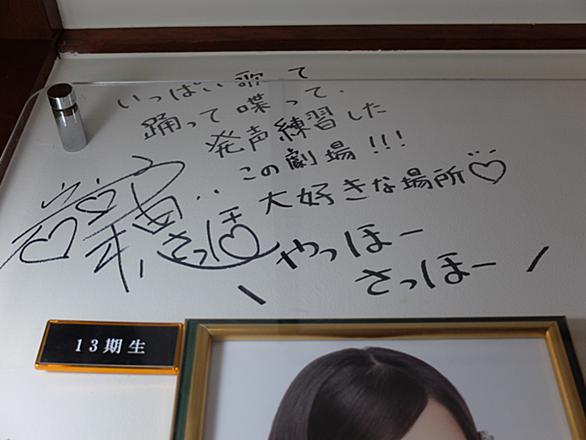 いっぱい歌って
踊って喋って、
発声練習した
この劇場!!!
大好きな場所♡
さっほ
やっほー
さっほー
13期生